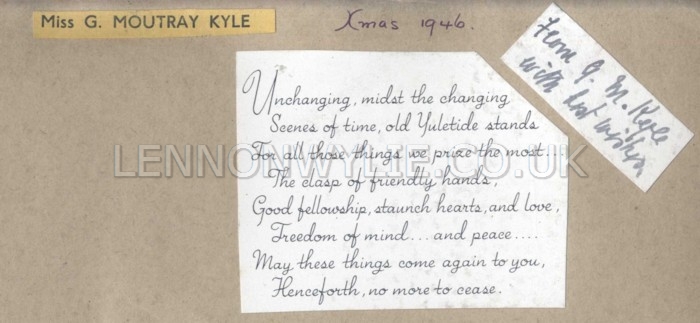 Miss G. MOUTRAY KYLE
Xmas 1946.
From G. M. Kyle
with best wishes
Unchanging, midst the changing
Scenes of time, old Yuletide stands
For all those things we prize the most...
The clasp of friendly hands,
Good fellowship, staunch hearts, and love,
Freedom of mind... and peace....
May these things come again to you,
Henceforth, no more to cease.
LENNONWYLIE.CO.UK